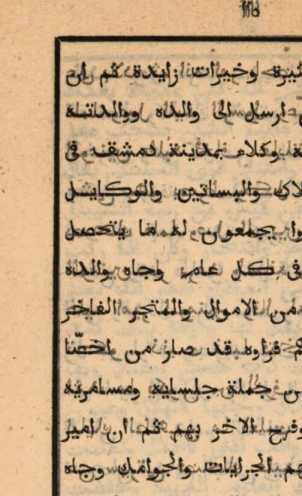 ثيرة وخيرات زايدة ثم ان
ارسل الى والده ووالدته
وكلاء بمدينة دمشق فى
لاك والبساتين والتوكايل
وا يجمعون له ما يتحصل
فى كل عام وجاء والده
من الاموال والمتجر الفاخر
قراوه قد صار من اخصّا
من جملة جلسايه ومسامريه
وفرح الاخر بهم ثم ان امير
هم الجرايات والجوامك وجاه